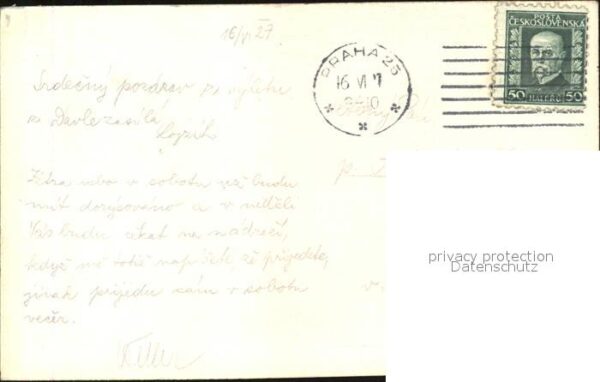 16/VI 27
POŠTA
ČESKOSLOVENSKÁ
50 HALÉŘŮ 50
PRAHA 25
16 VI 7
Srdečný pozdrav z výletu
z Davle zasílá
Lojzík
Zítra nebo v sobotu už budu
mít dorýsováno a v neděli
Vás budu čekat na nádraží,
když mě totiž napíšete, že přijedete,
jinak přijedu sám v sobotu
večer.
p.
v
privacy protection
Datenschutz